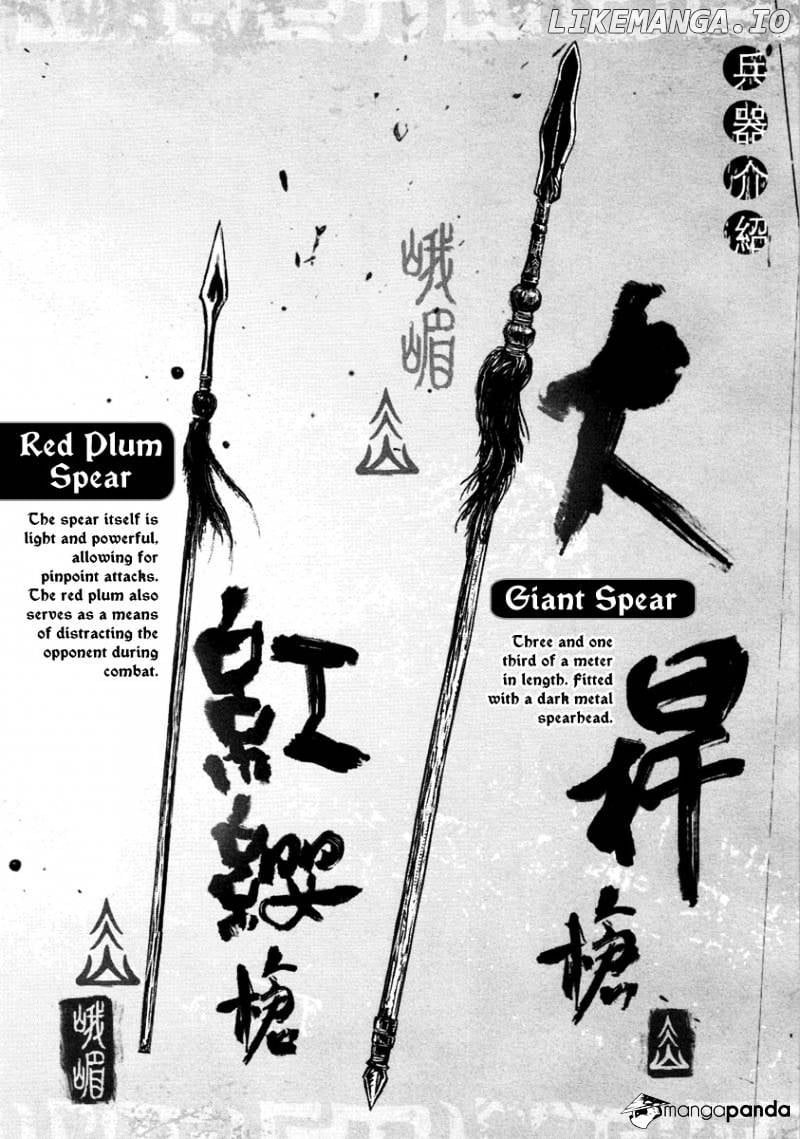 LIKEMANGA.IO
兵器介紹
峨嵋
大桿槍
Red Plum
Spear
The spear itself is
light and powerful,
allowing for
pinpoint attacks.
The red plum also
serves as a means
of distracting the
opponent during
combat.
Giant Spear
Three and one
third of a meter
in length. Fitted
with a dark metal
spearhead.
紅纓槍
峨嵋
mangapanda